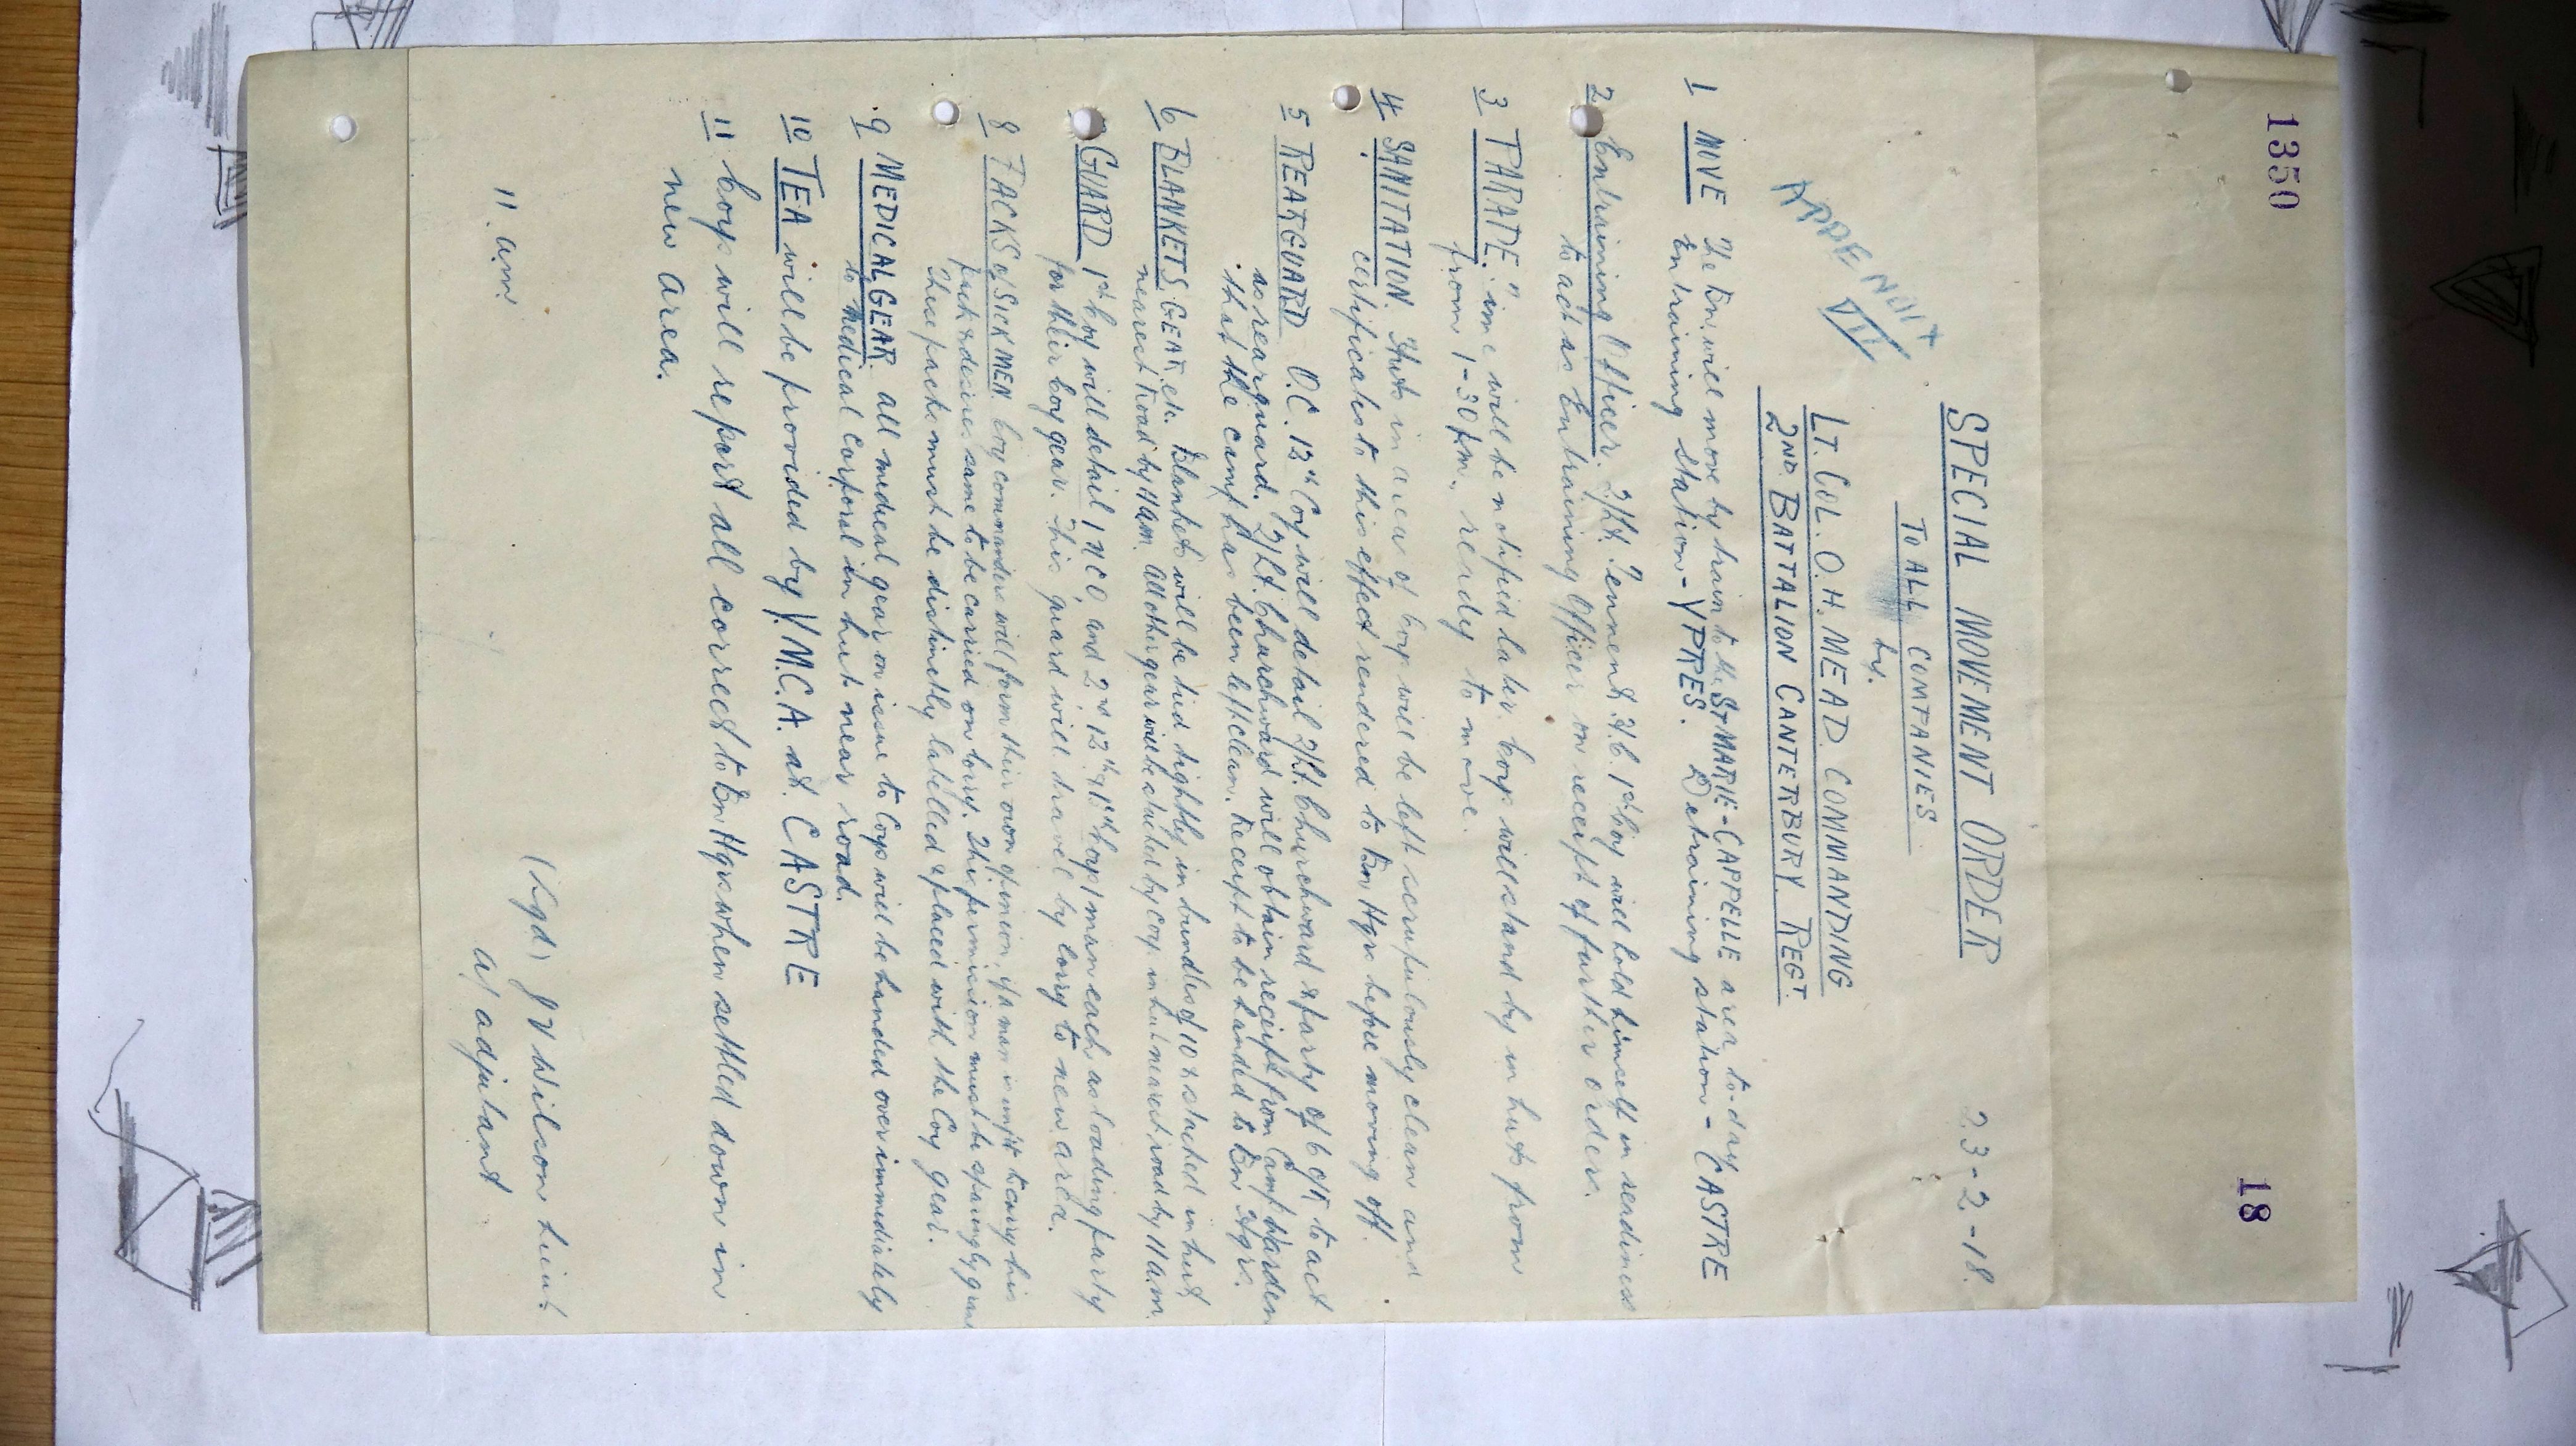 1350
18
SPECIAL MOVEMENT ORDER
23-2-18.
TO ALL COMPANIES
by.
APPENDIX
VII
LT. COL. O.H. MEAD COMMANDING
2ND BATTALION CANTERBURY REGT.
1 MOVE The Bn. will move by train to the ST MARIE-CAPPELLE area to-day
Entraining station - YPRES. Detraining station - CASTRE
2 Entraining Officer. 2/Lt. Tennent H.C. 1st Coy will hold himself in readiness
to act as Entraining Officer on receipt of further orders.
3 PARADE. Time will be notified later. Coys will stand by in huts from
from 1-30 pm. ready to move.
4 SANITATION. Huts in area of Coys will be left scrupulously clean and
certificates to this effect rendered to Bn Hqrs before moving off.
5 REARGUARD O.C. 12th Coy will detail 2/Lt. Churchward & party of 6 O/R to act
as rearguard. 2/Lt. Churchward will obtain receipt from Camp Warden
that the camp has been left clean. Receipt to be handed to Bn Hqrs.
6 BLANKETS GEAR etc. Blankets will be tied tightly in bundles of 10 & stacked in hut
nearest road by 11 am. All other gear will be stacked by coys in hut nearest road by 11 am.
GUARD 1st Coy will detail 1 NCO, and 2nd, 12th & 13th Coys 1 man each as loading party
for their Coy gear. This guard will travel by lorry to new area.
8 PACKS of SICK MEN Coy commanders will form their own opinion, if a man is unfit to carry his
pack & desires same to be carried on lorry. This permission must be sparingly given
These packs must be distinctly labelled & placed with the Coy gear.
9 MEDICAL GEAR all medical gear on issue to Coys will be handed over immediately
to Medical Corporal in hut near road.
10 TEA will be provided by Y.M.C.A. at CASTRE
11 Coys will report all correct to Bn Hqrs when settled down in
new area.
11. am.
(Sgd) J V Wilson Lieut.
a/ adjutant